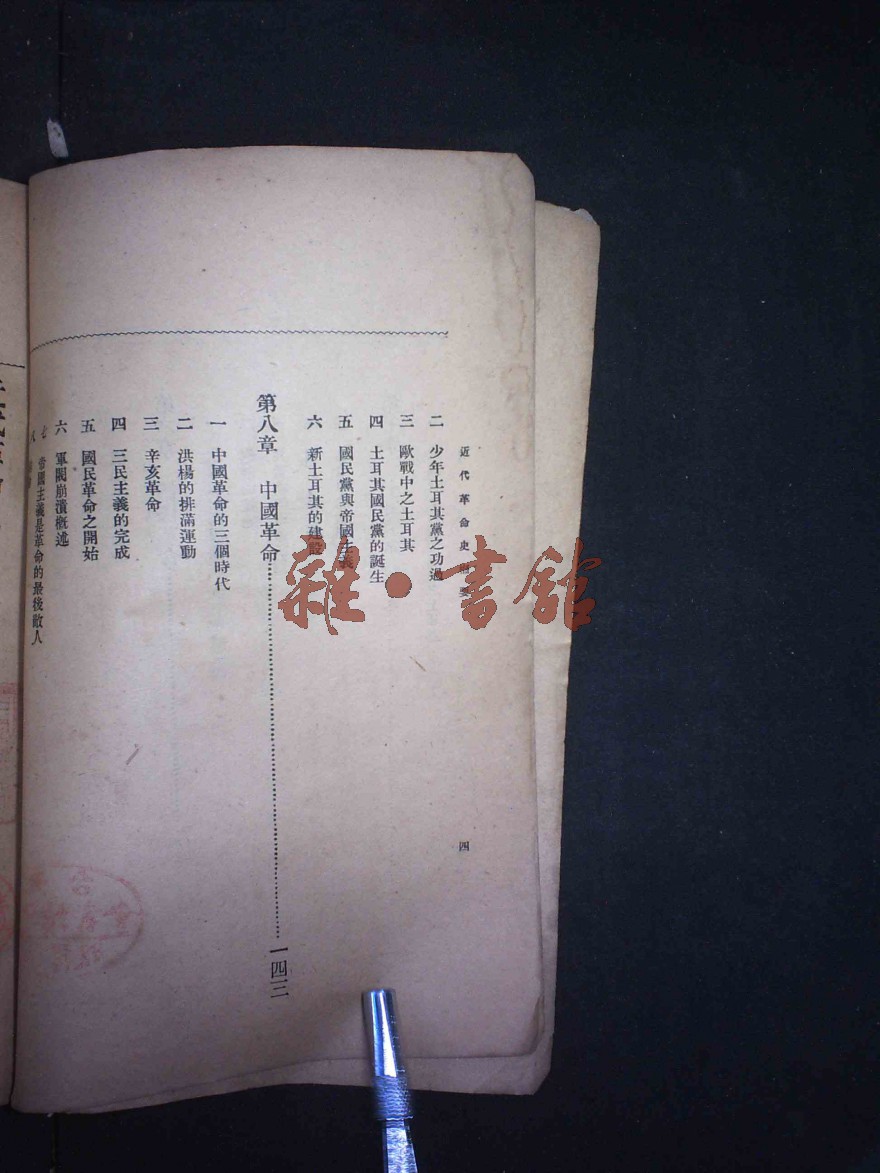 近代革命史概要
四
二 少年土耳其黨之功過
三 歐戰中之土耳其
四 土耳其國民黨的誕生
五 國民黨與帝國主義
六 新土耳其的建設
第八章 中國革命 一四三
一 中國革命的三個時代
二 洪楊的排滿運動
三 辛亥革命
四 三民主義的完成
五 國民革命之開始
六 軍閥崩潰概述
七 帝國主義是革命的最後敵人
八
雜·書館